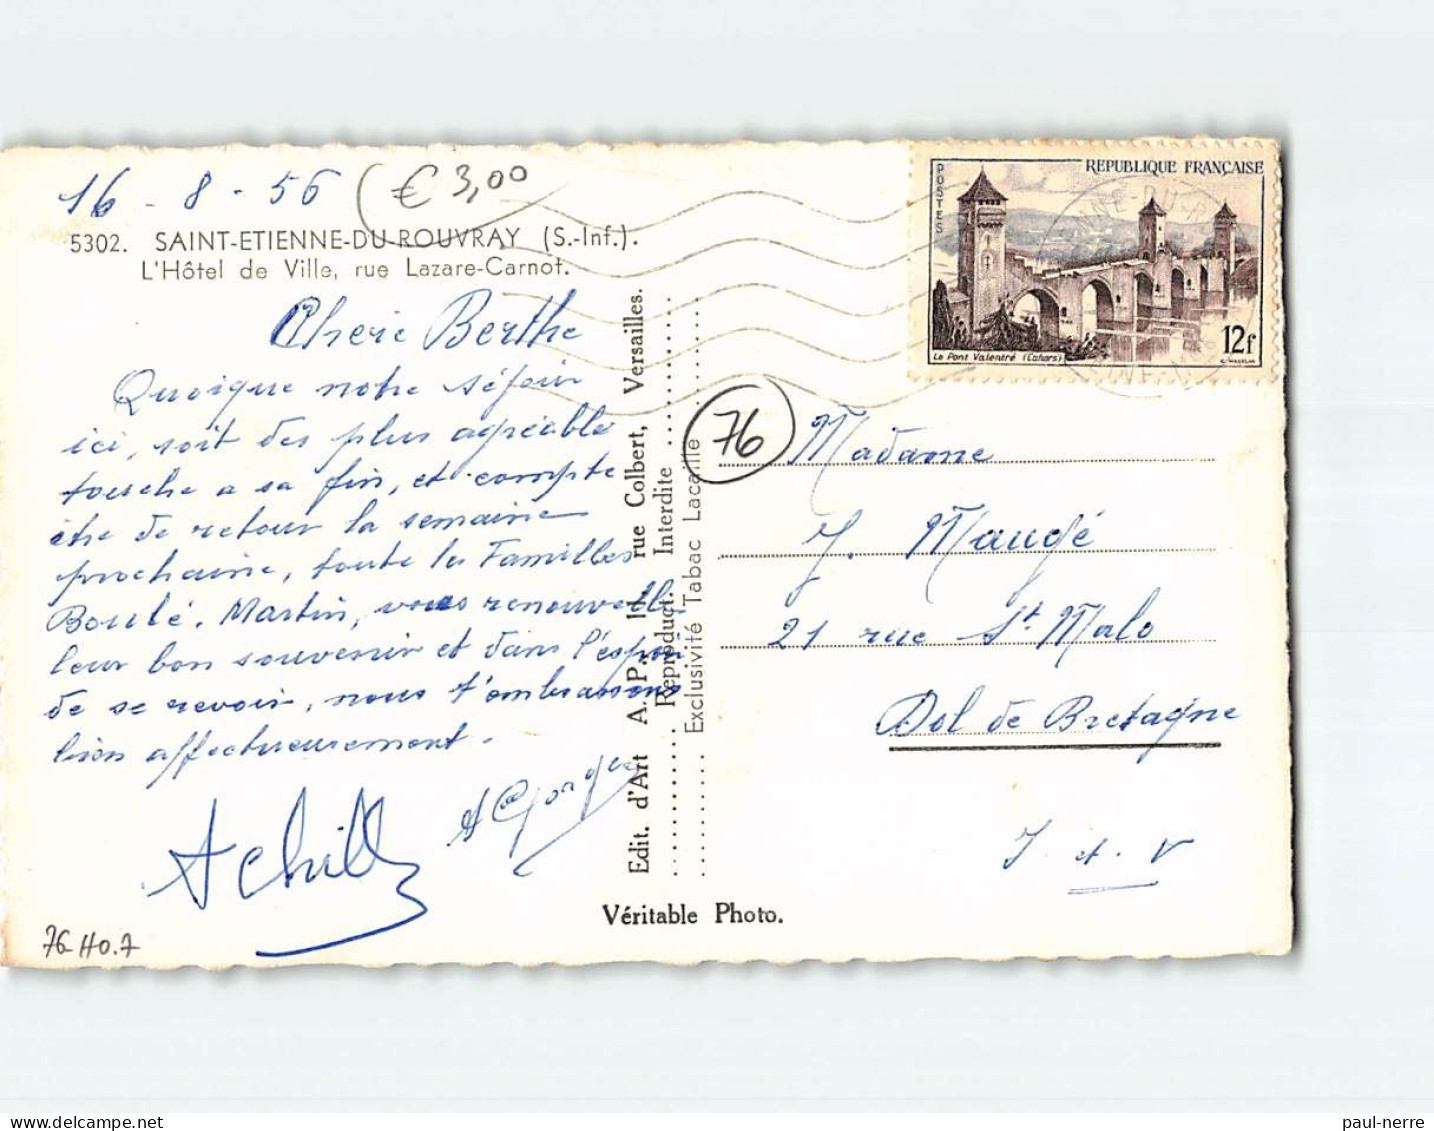 16 - 8 - 56
€ 3,00
5302. SAINT-ETIENNE-DU-ROUVRAY (S.-Inf.).
L'Hôtel de Ville, rue Lazare-Carnot.
Cherie Berthe
Quoique notre séjour
ici, soit des plus agréable
touche a sa fin, et compte
être de retour la semaine
prochaine, toute les Familles
Boulé. Martin, vous renouvelle
leur bon souvenir et dans l'espoir
de se revoir, nous t'embrassons
bien affectueusement.
Achille
76 HO.7
Edit. d'Art A. P., rue Colbert, Versailles.
Reproduct. Interdite
Exclusivité Tabac Lacaille
Véritable Photo.
POSTES
REPUBLIQUE FRANÇAISE
Le Pont Valentré (Cahors)
12f
76
Madame
J. Maugé
21 rue St Malo
Dol de Bretagne
I. et. V
paul-nerre